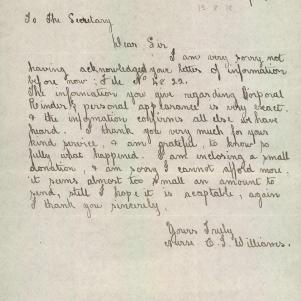 To The Secretary
Dear Sir
I am very sorry not
having acknowledged your letter of information
before now: File No
The information you give regarding Corporal
personal appearance is very exact.
& the information confirms all else we have
heard. I thank you very much for your
kind service, & am grateful, to know so
fully what happened. I am inclosing a small
donation, & am sorry I cannot afford more.
it seems almost too small an amount to
send, still I hope it is acceptable, again
I thank you sincerely,
Yours Truly
Nurse C. J. Williams.